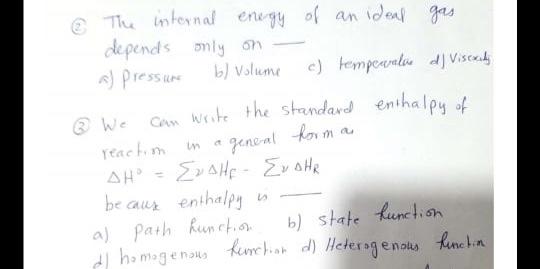 ② The internal energy of an ideal gas
depends only on —
a) Pressure b) Volume c) temperature d) Viscosity
③ We can write the standard enthalpy of
reaction in a general form as
ΔH° = ΣνΔHF - ΣνΔHR
because enthalpy is —
a) path function b) state function
d) homogenous function d) Heterogenous function